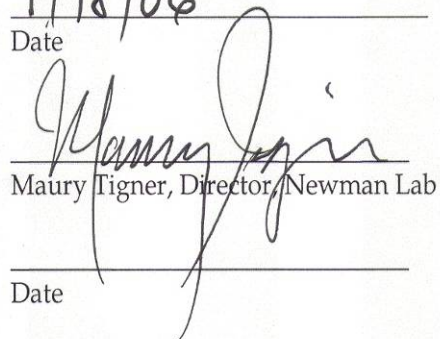 1/18/06
Date
Maury Tigner
Maury Tigner, Director, Newman Lab
Date